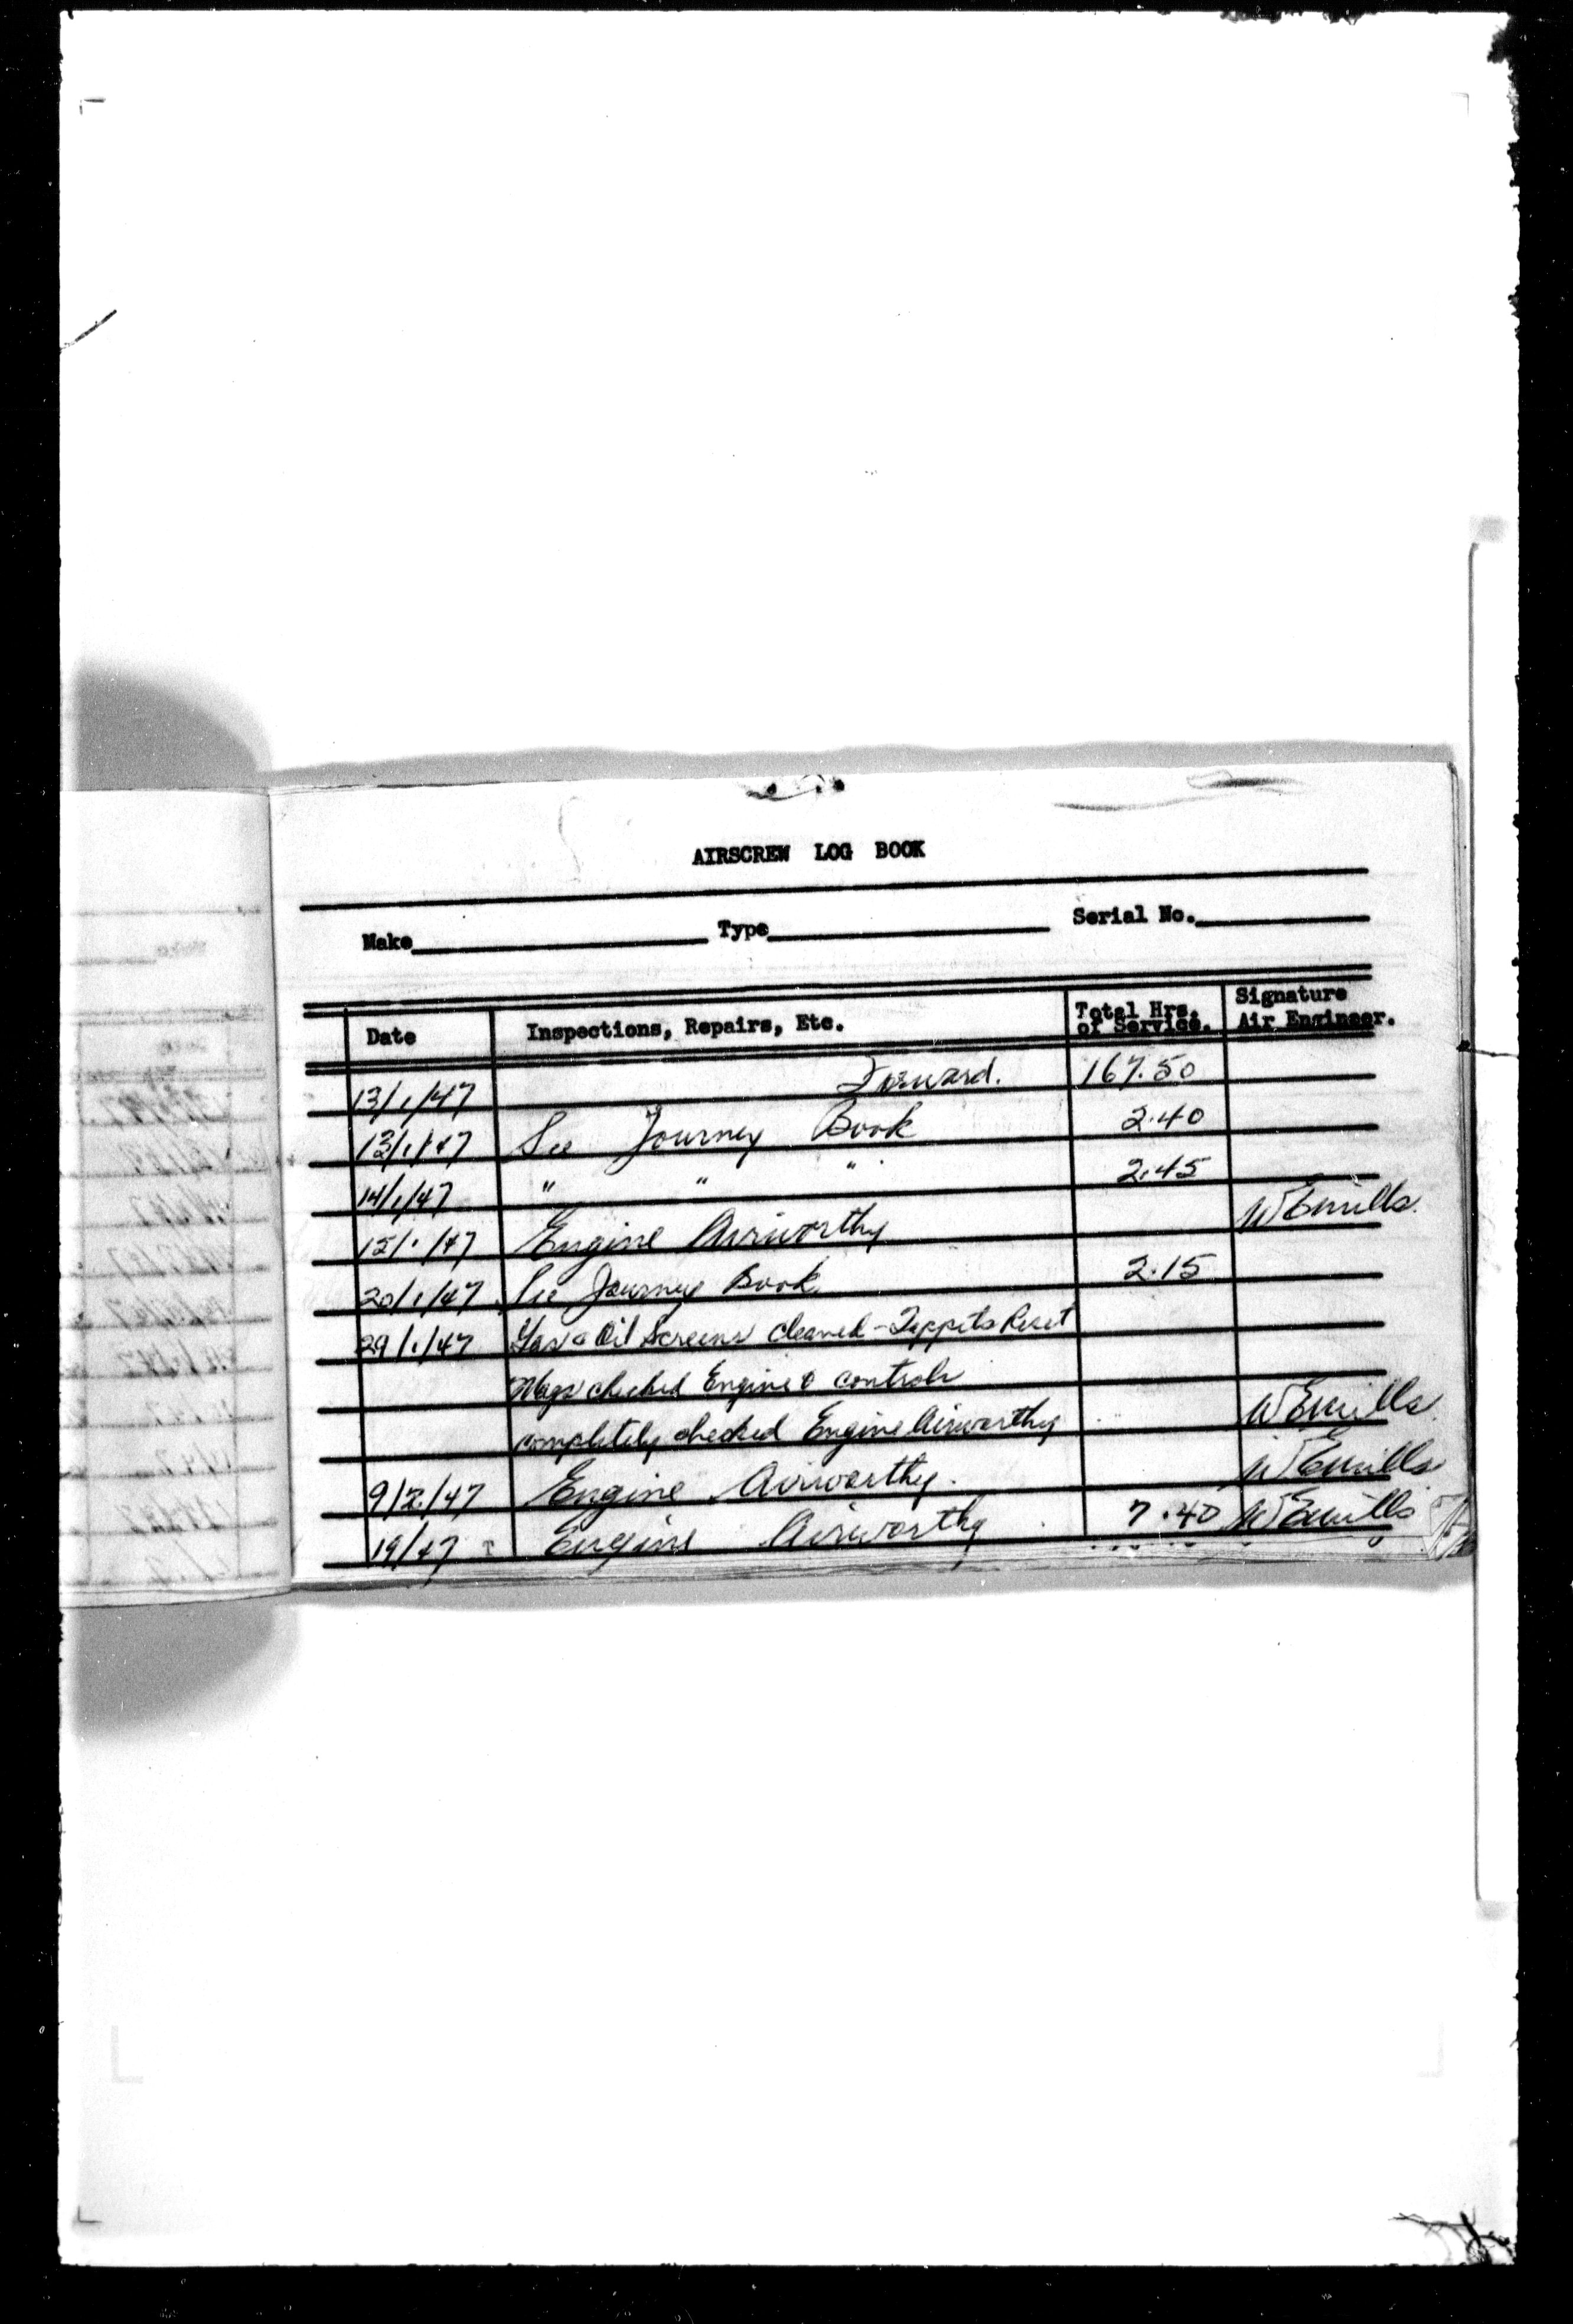 AIRSCREW LOG BOOK
Make Type Serial No.
Date Inspections, Repairs, Etc. Total Hrs. of Service. Signature Air Engineer.
13/1/47 Forward. 167.50
13/1/47 See Journey Book 2.40
14/1/47 " " " 2.45
15/1/47 Engine Airworthy WEmills.
20/1/47 See Journey Book 2.15
29/1/47 Gas & Oil Screens cleaned - Tappits Reset
Mags checked Engine & controls
completely checked Engine Airworthy WEmills.
9/2/47 Engine Airworthy. WEmills
19/47 Engine Airworthy 7.40 WEmills